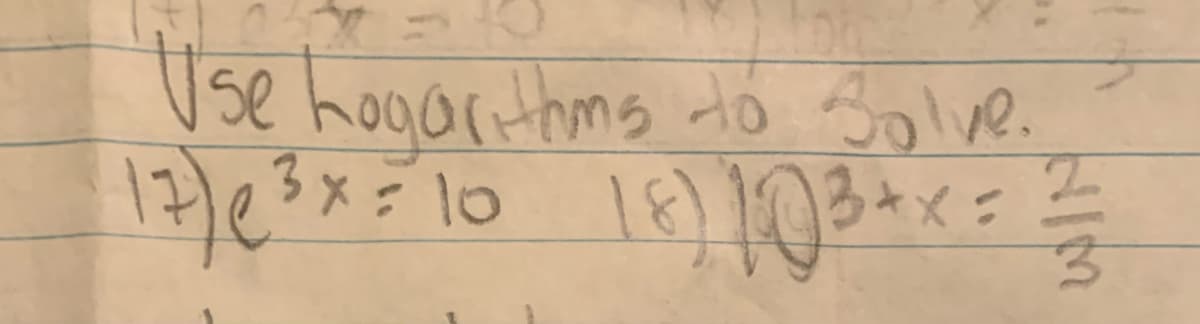 Use hogarithms to Solve.
17) e^3x = 10 18) 10^3+x = 2/3